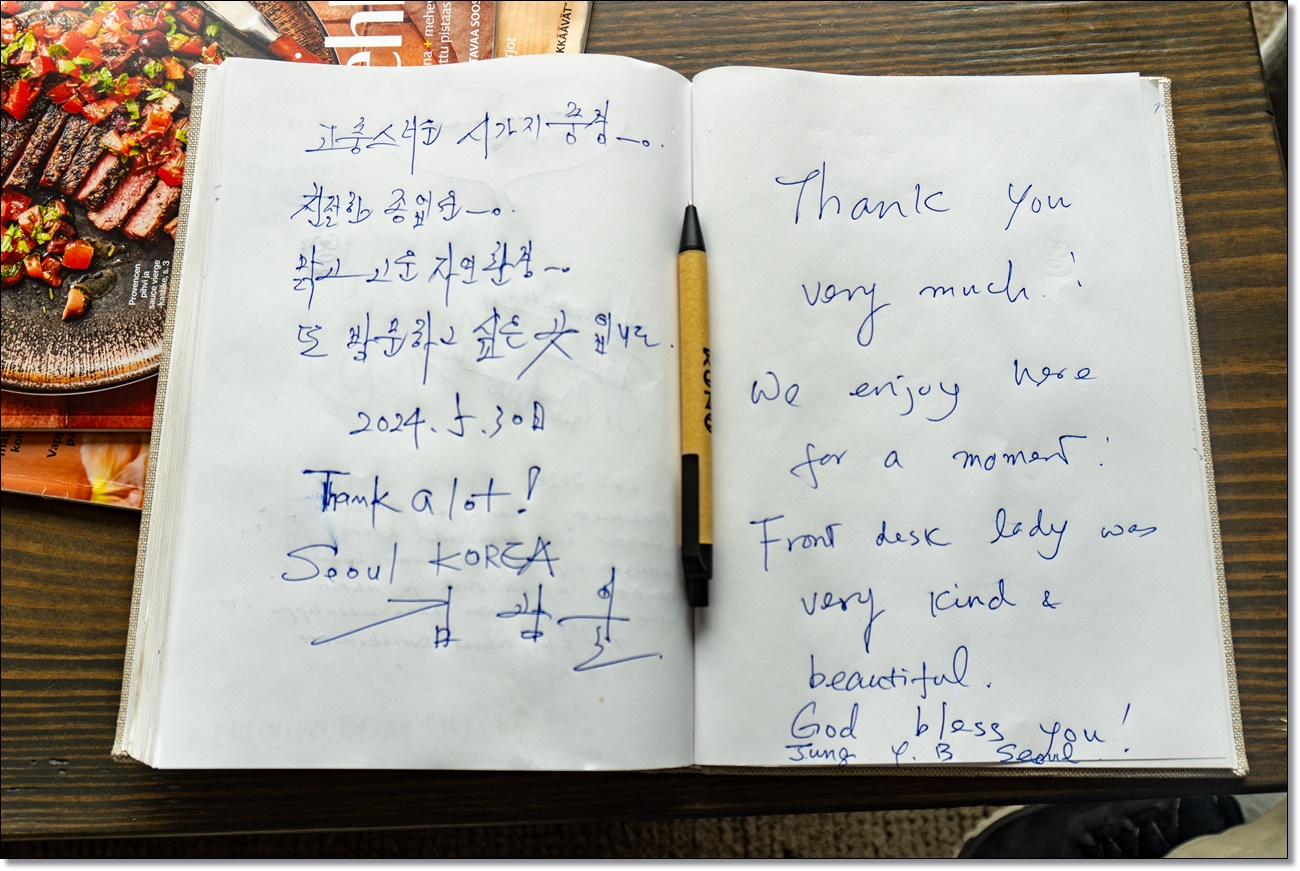 고풍스러운 시가지 풍경~.
친절한 종업원~.
맑고 고운 자연환경~.
또 방문하고 싶은 곳 입니다.
2024. 5. 30日
Thank a lot!
Seoul KOREA
김
Thank you
very much!
We enjoy here
for a moment!
Front desk lady was
very kind &
beautiful.
God bless you!
Jung Y. B Seoul
Provencen
pihvi ja
sauce vierge